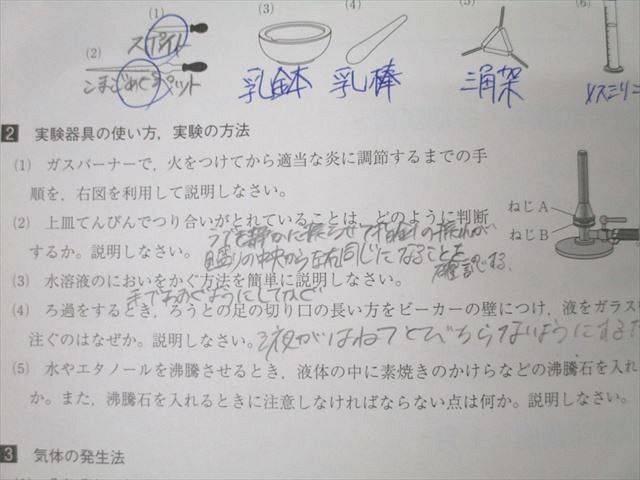 (1)
(3)
(4)
(5)
(6)
スポイト
(2)
こまごめピペット
乳鉢
乳棒
三角架
メスシリン
2 実験器具の使い方，実験の方法
(1) ガスバーナーで，火をつけてから適当な炎に調節するまでの手
順を，右図を利用して説明しなさい。
(2) 上皿てんびんでつり合いがとれていることは，どのように判断
するか。説明しなさい。
目盛りの中央から左右同じになることを
確認する。
ねじA
ねじB
(3) 水溶液のにおいをかぐ方法を簡単に説明しなさい。
手であおぐようにしてかぐ
(4) ろ過をするとき，ろうとの足の切り口の長い方をビーカーの壁につけ，液をガラス
注ぐのはなぜか。説明しなさい。液がはねてとびちらないようにするた
(5) 水やエタノールを沸騰させるとき，液体の中に素焼きのかけらなどの沸騰石を入れ
か。また，沸騰石を入れるときに注意しなければならない点は何か。説明しなさい。
3 気体の発生法